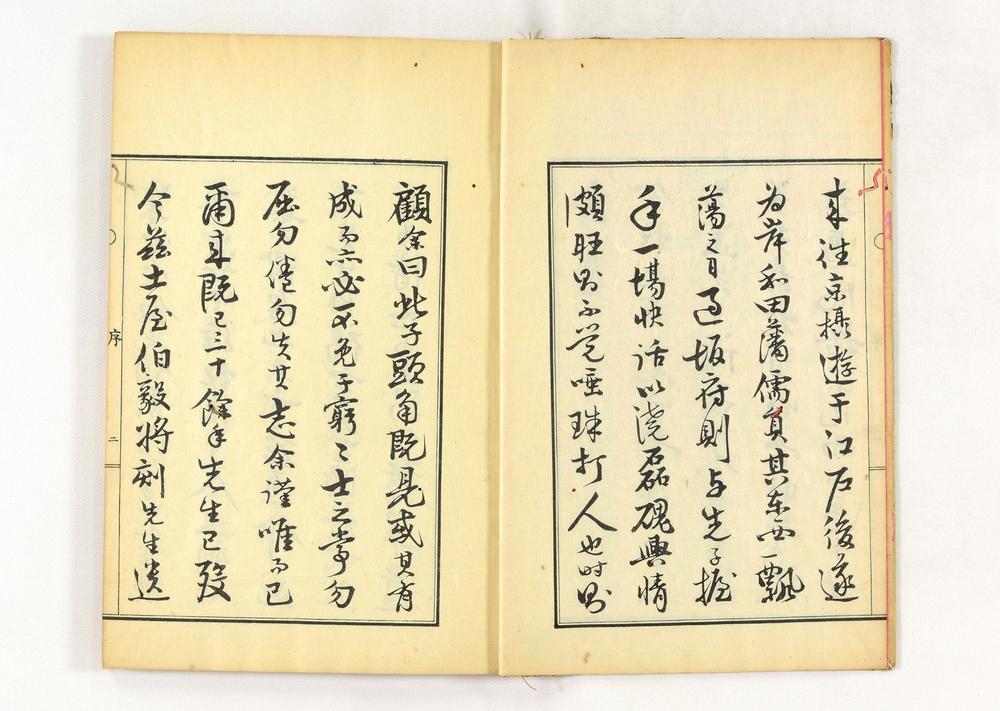 来往京摂遊于江戸後遂
為岸和田藩儒員其东西飄
蕩之日過坂府則与先子握
手一場快話以澆磊磈興情
頗旺則不覚唾珠打人也时則
顧余曰此子頭角既見或其有
成而亦必不免于窮〻士之常勿
屈勿倦勿失其志余謹唯而已
爾来既已三十餘年先生已歿
今茲土屋伯毅将刻先生遺
序
二